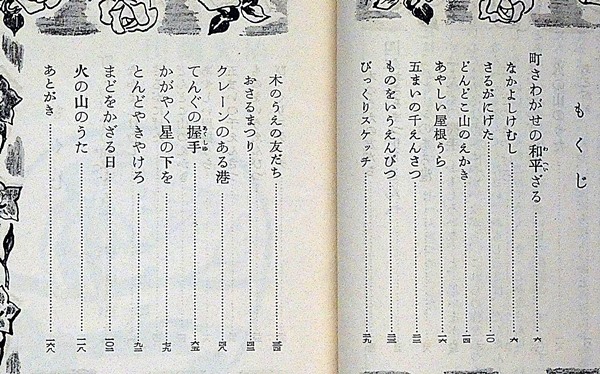 もくじ
町さわがせの和平ざる……六
なかよしけむし……六
さるがにげた……一〇
どんどこ山のえかき……一四
あやしい屋根うら……一六
五まいの千えんさつ……二二
ものをいうえんぴつ
びっくりスケッチ……二九
木のうえの友だち……三四
おさるまつり……四三
クレーンのある港……四八
てんぐの握手……六五
かがやく星の下を……七九
とんどやきやけろ……九三
まどをかざる日……一〇三
火の山のうた……一一八
あとがき……一六八